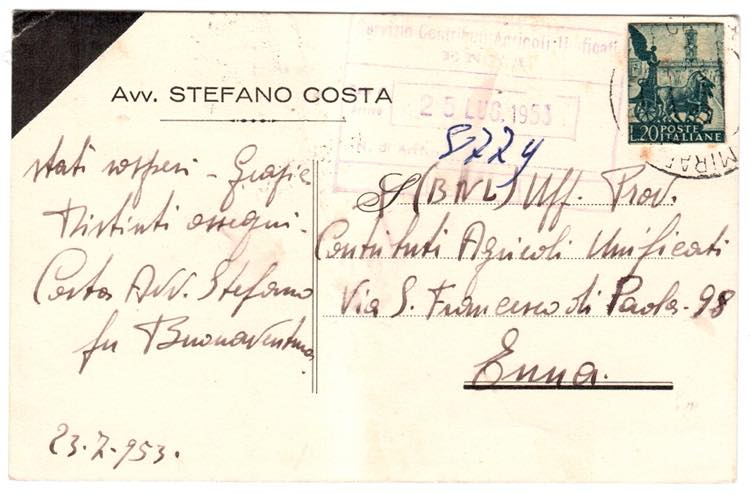 Avv. STEFANO COSTA
Servizio Contributi Agricoli Unificati
25 LUG. 1953
5224
L.20 POSTE
ITALIANE
MIRAB
stati sospesi - Grazie
Distinti ossequi -
Costa Avv. Stefano
fu Buonaventura
23.7.953.
(BNL) Uff. Prov.
Contributi Agricoli Unificati
Via S. Francesco di Paola - 98
Enna.